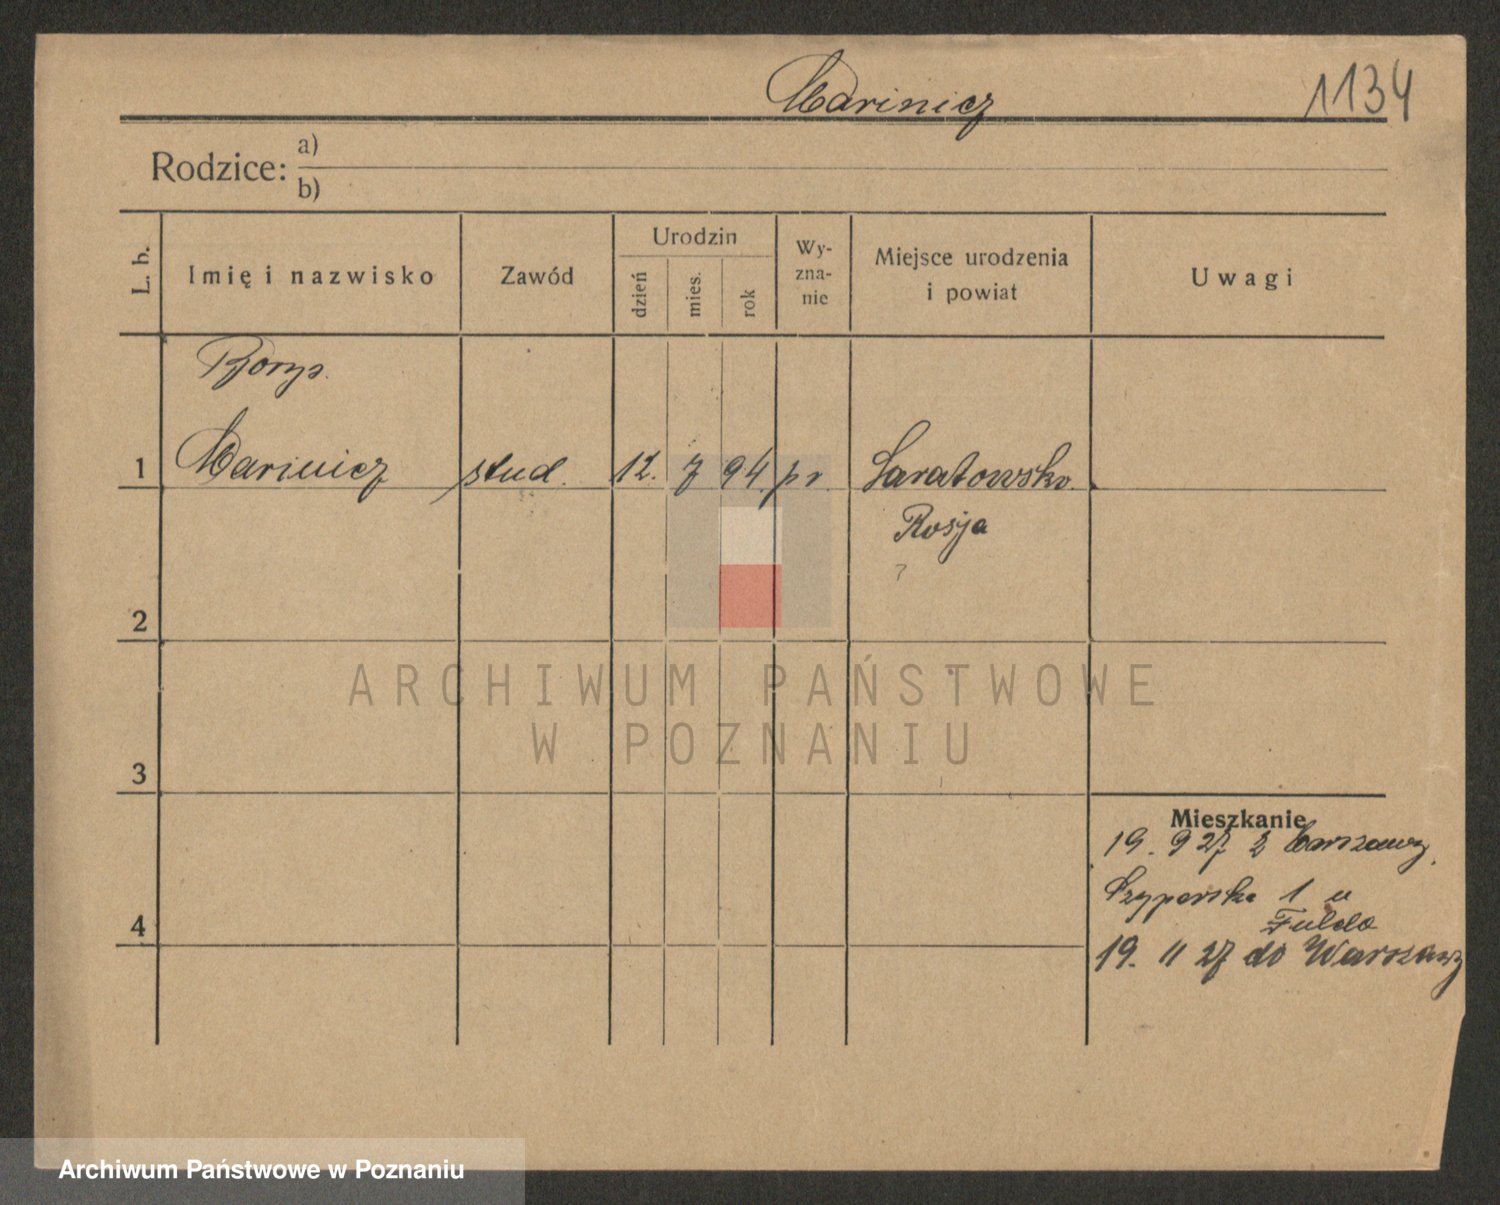 Marinicz
1134
Rodzice: a)
b)
L. b.
Imię i nazwisko
Zawód
Urodzin
dzień
mies.
rok
Wy-
zna-
nie
Miejsce urodzenia
i powiat
Uwagi
Borys.
1 Marinicz stud. 12. 7 94. pr. Saratowsko.
Rosja
?
2
3
4
Mieszkanie
19. 9 27 z Warszawy.
Szyperska 1 u
Fulda
19. 11 27 do Warszawy
ARCHIWUM PAŃSTWOWE
W POZNANIU
Archiwum Państwowe w Poznaniu